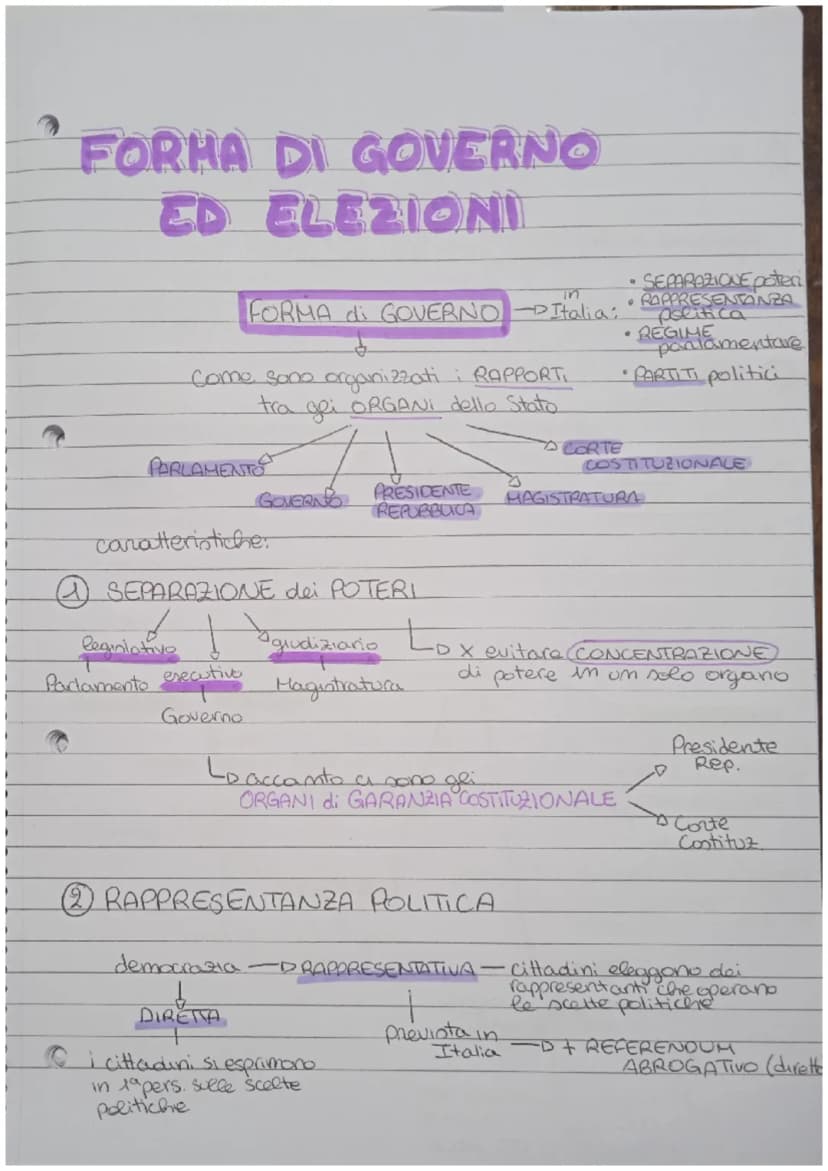 FORMA DI GOVERNO
ED ELEZIONI
FORMA di GOVERNO
in
Italia:
• SEPARAZIONE poteri
• RAPPRESENTANZA
politica
• REGIME
parlamentare
• PARTITI politici
come sono organizzati i RAPPORTI
tra gli ORGANI dello Stato
PARLAMENTO
GOVERNO
PRESIDENTE
REPUBBLICA
MAGISTRATURA
CORTE
COSTITUZIONALE
caratteristiche:
1 SEPARAZIONE dei POTERI
legislativo
Parlamento
esecutivo
Governo
giudiziario
Magistratura
x evitare CONCENTRAZIONE
di potere in un solo organo
accanto ci sono gli
ORGANI di GARANZIA COSTITUZIONALE
Presidente
Rep.
Corte
Costituz.
2 RAPPRESENTANZA POLITICA
democrazia
RAPPRESENTATIVA — cittadini eleggono dei
rappresentanti che operano
le scelte politiche
DIRETTA
i cittadini si esprimono
in 1ª pers. sulle scelte
politiche
prevista in
Italia
+ REFERENDUM
ABROGATIVO (dirett